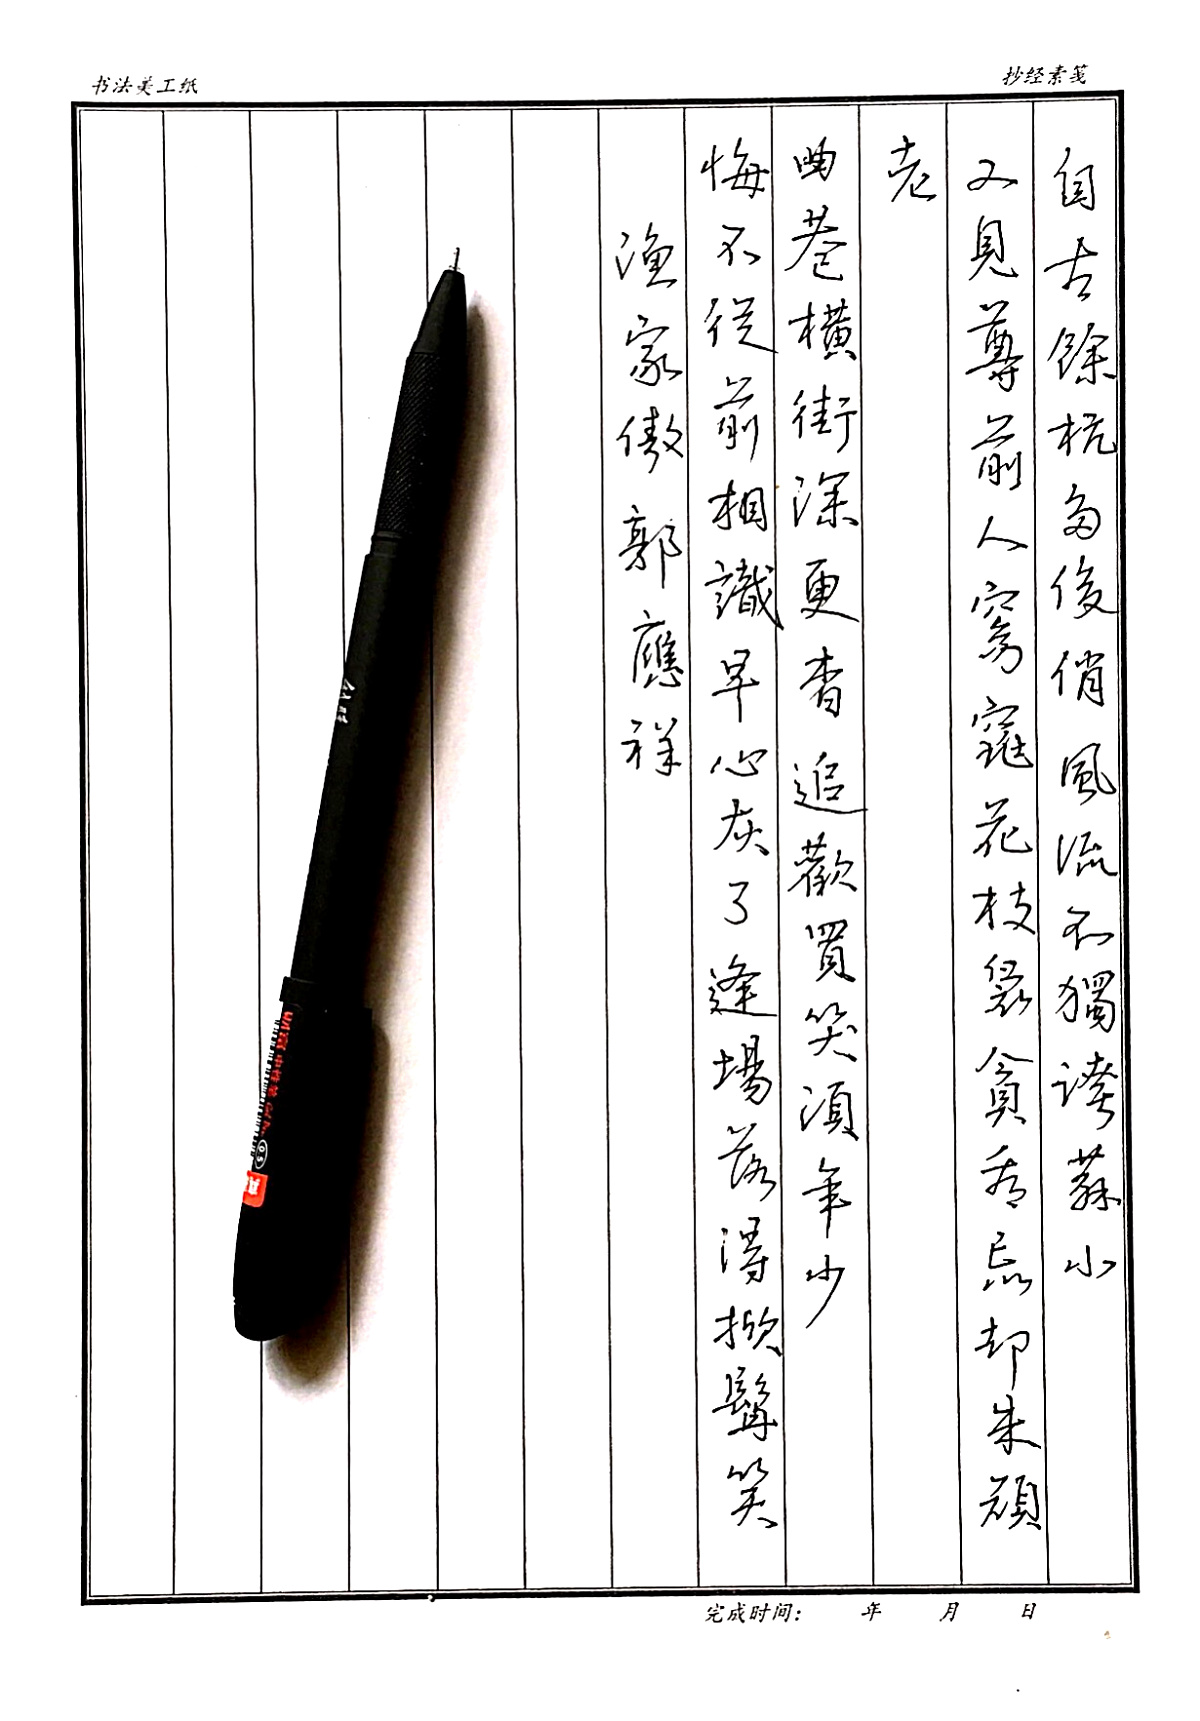 书法美工纸
抄经素笺
自古餘杭多俊俏風流不獨誇蘇小
又見尊前人窈窕花枝裊貪看忘却朱顏
老
曲巷橫街深更杳追歡買笑須年少
悔不從前相識早心灰了逢場落得掀髯笑
漁家傲郭應祥
完成时间： 年 月 日
0.5